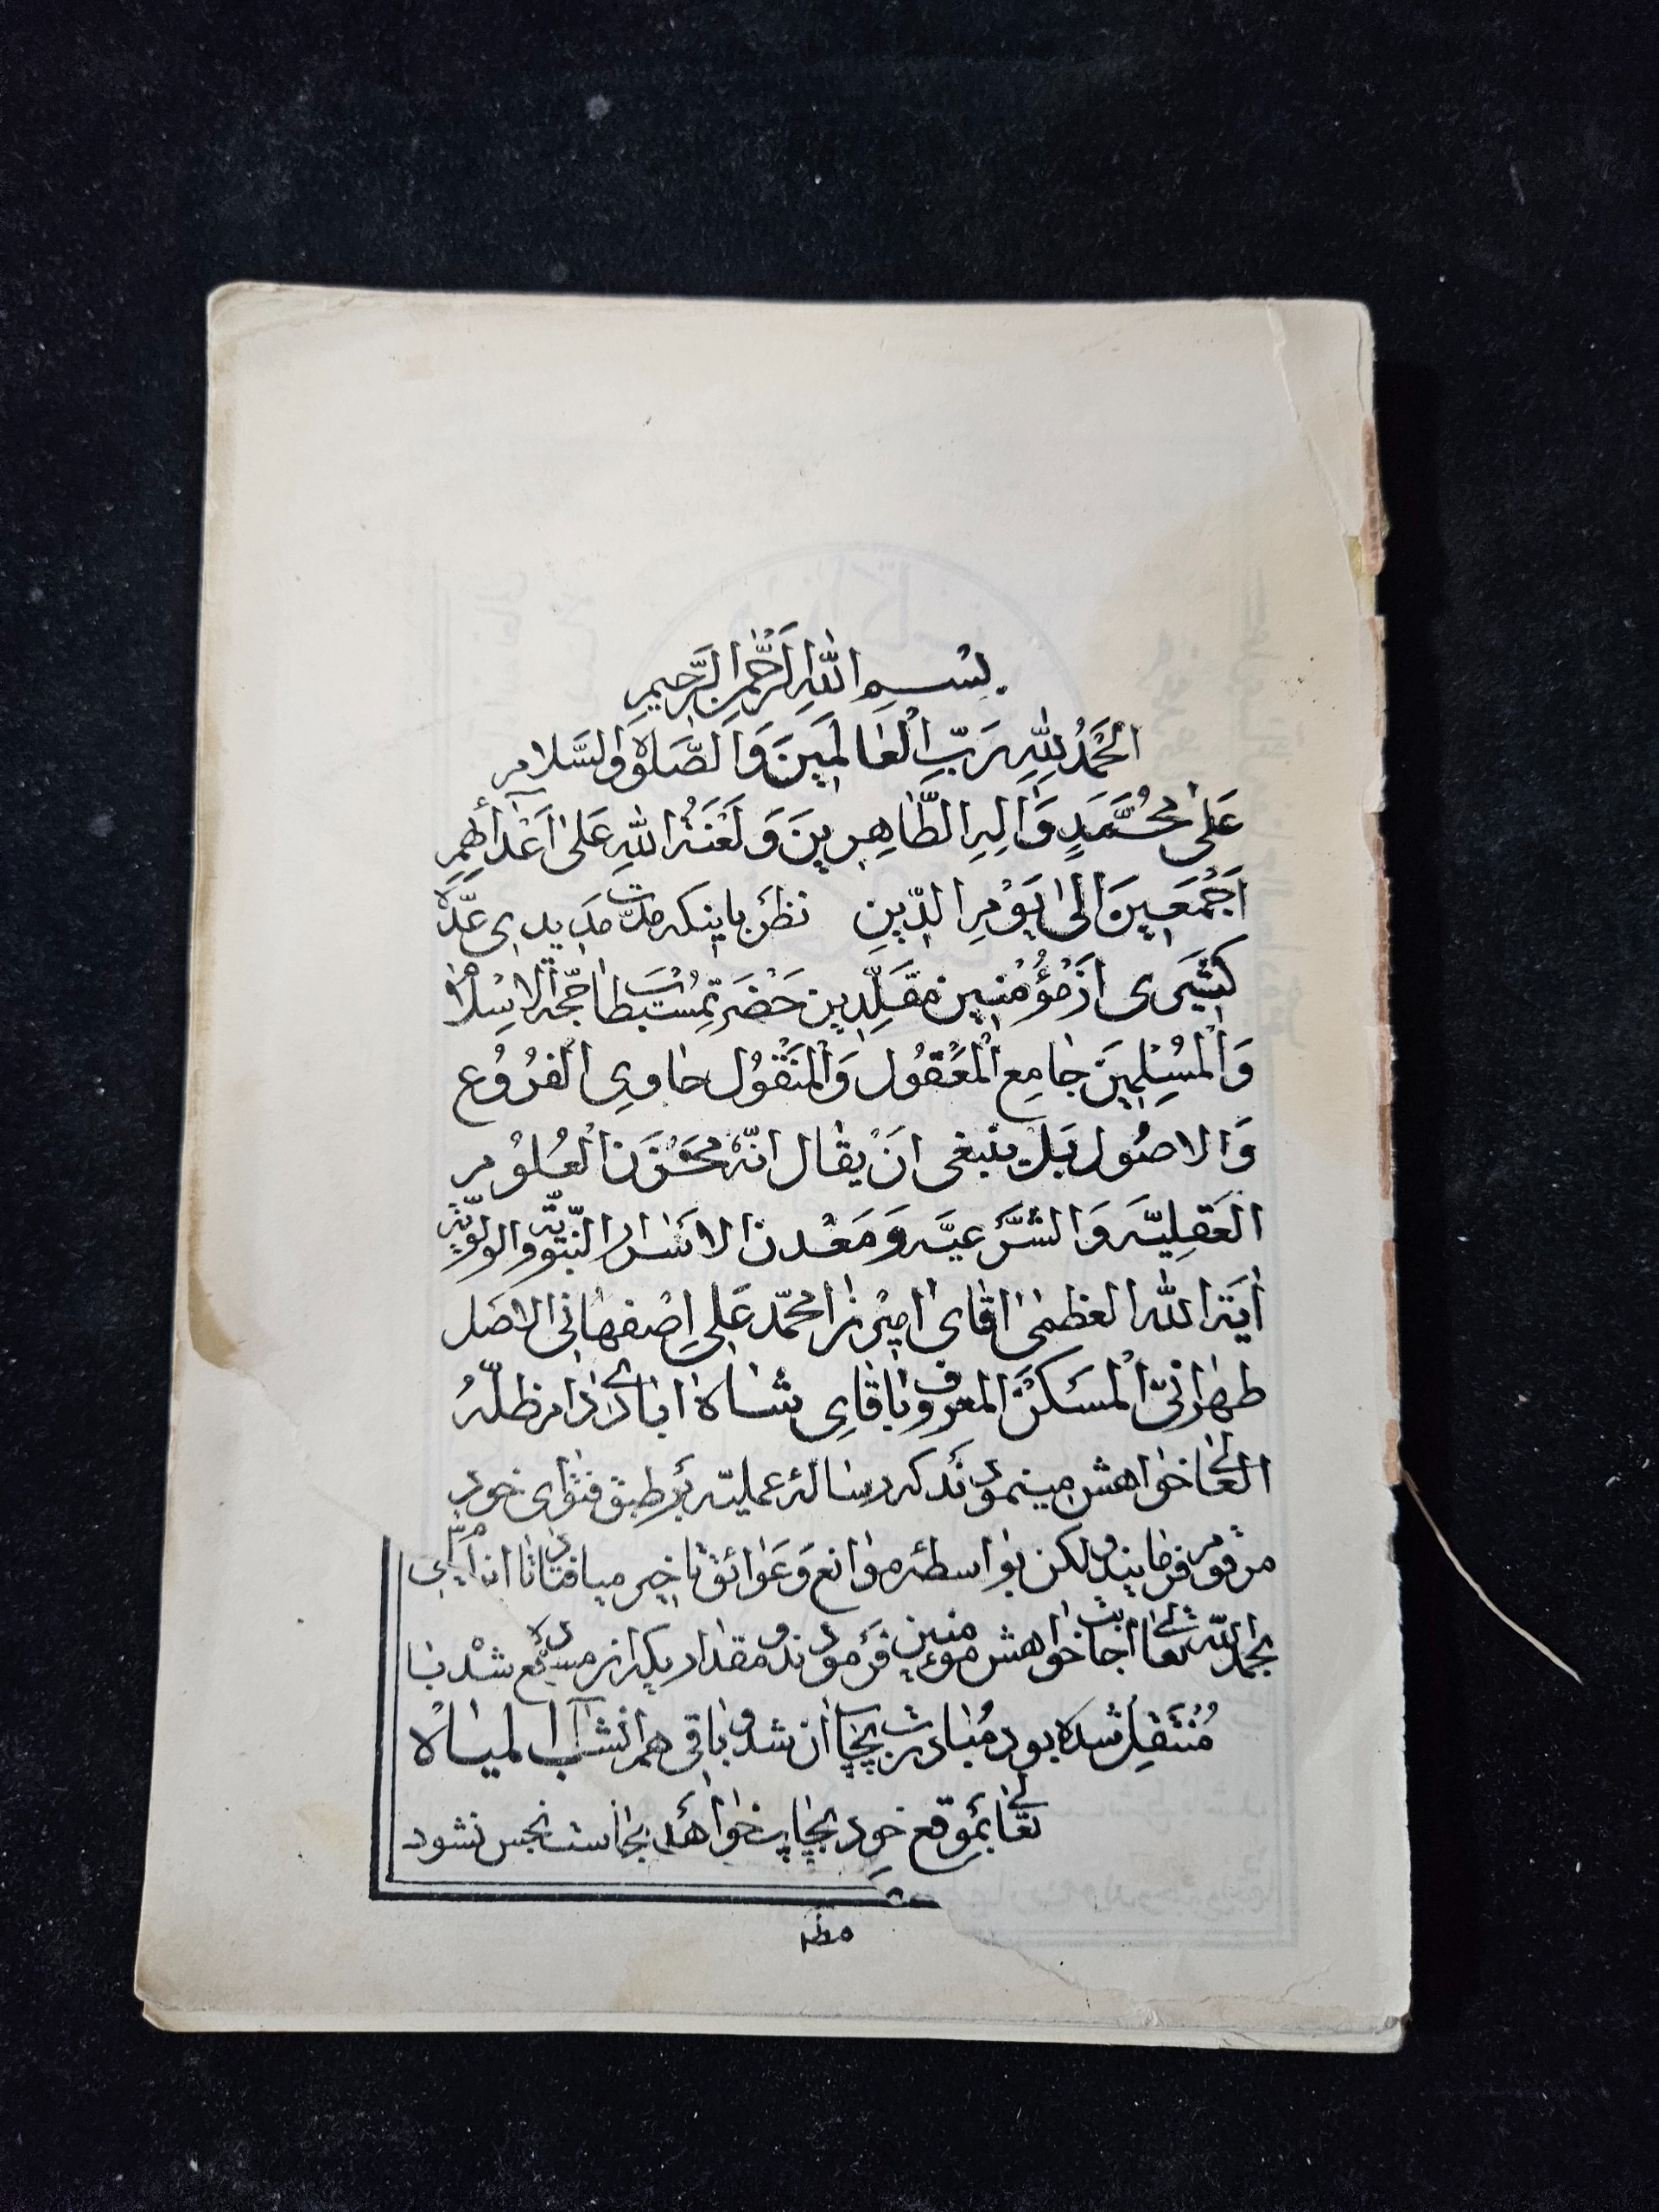 بِسْمِ اللهِ الرَّحْمنِ الرَّحيمِ
اَلْحَمْدُ لِلّهِ رَبِّ الْعالَمينَ وَالصَّلوةُ وَالسَّلام
عَلى مُحَمَّدٍ وَالِهِ الطّاهِرينَ وَلَعْنَةُ اللهِ عَلى اَعْدائِهِمْ
اَجْمَعينَ اِلى يَوْمِ الدّينِ نظر باينكه مدّت مديدى عدّه
كثيرى از مؤمنين مقلّدين حضرت مستطاب حجّة الاسلام
وَالْمُسْلِمينَ جامِع الْمَعْقُول وَالْمَنْقُول حاوى الفُرُوع
وَالاصُول بَل ينبغى اَنْ يقال انّه مخزن العُلُوم
العَقليّه وَالشَّرعيّه وَمَعْدن الاَسْرار النّبويّة والولويّة
أيَة الله العظمى اقاى اميرزا محمّد عَلى اِصْفهانى الاصَل
طهرانىّ الْمَسكن المعروف باقاى شاه ابادى دام ظلّهُ
العالى خواهش مينمودند كه رسالۀ عمليّه بَر طبق فتواى خود
مرقوم فرمايند ولكن بواسطۀ موانع وَعَوائق تاخير ميافتاد تا
بحمد الله تعالى اجابت خواهش مؤمنين فرمودند و مقدار يكه از
مُنتقل شده بود مُبادرت بچاپ ان شد و باقى هم انشاء المياه
تعالى بموقع خود بچاپ خواهد نجاست نجس نشود
شد